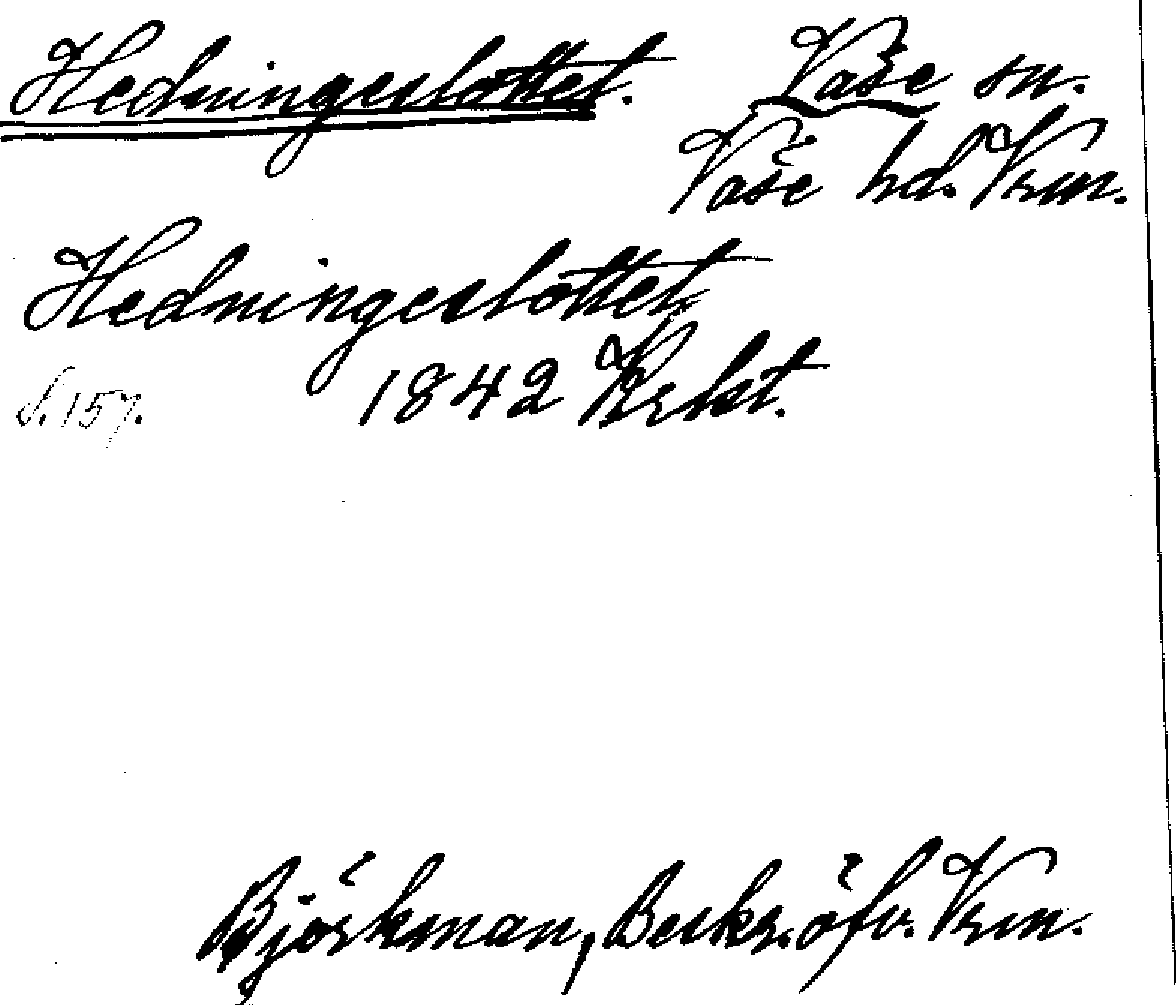 Hedningeslottet. Väse sn.
Väse hd. Vrm.
Hedningeslottet,
1842 Krkt.
S. 157.
Björkman, Beskr. öfv. Vrm.